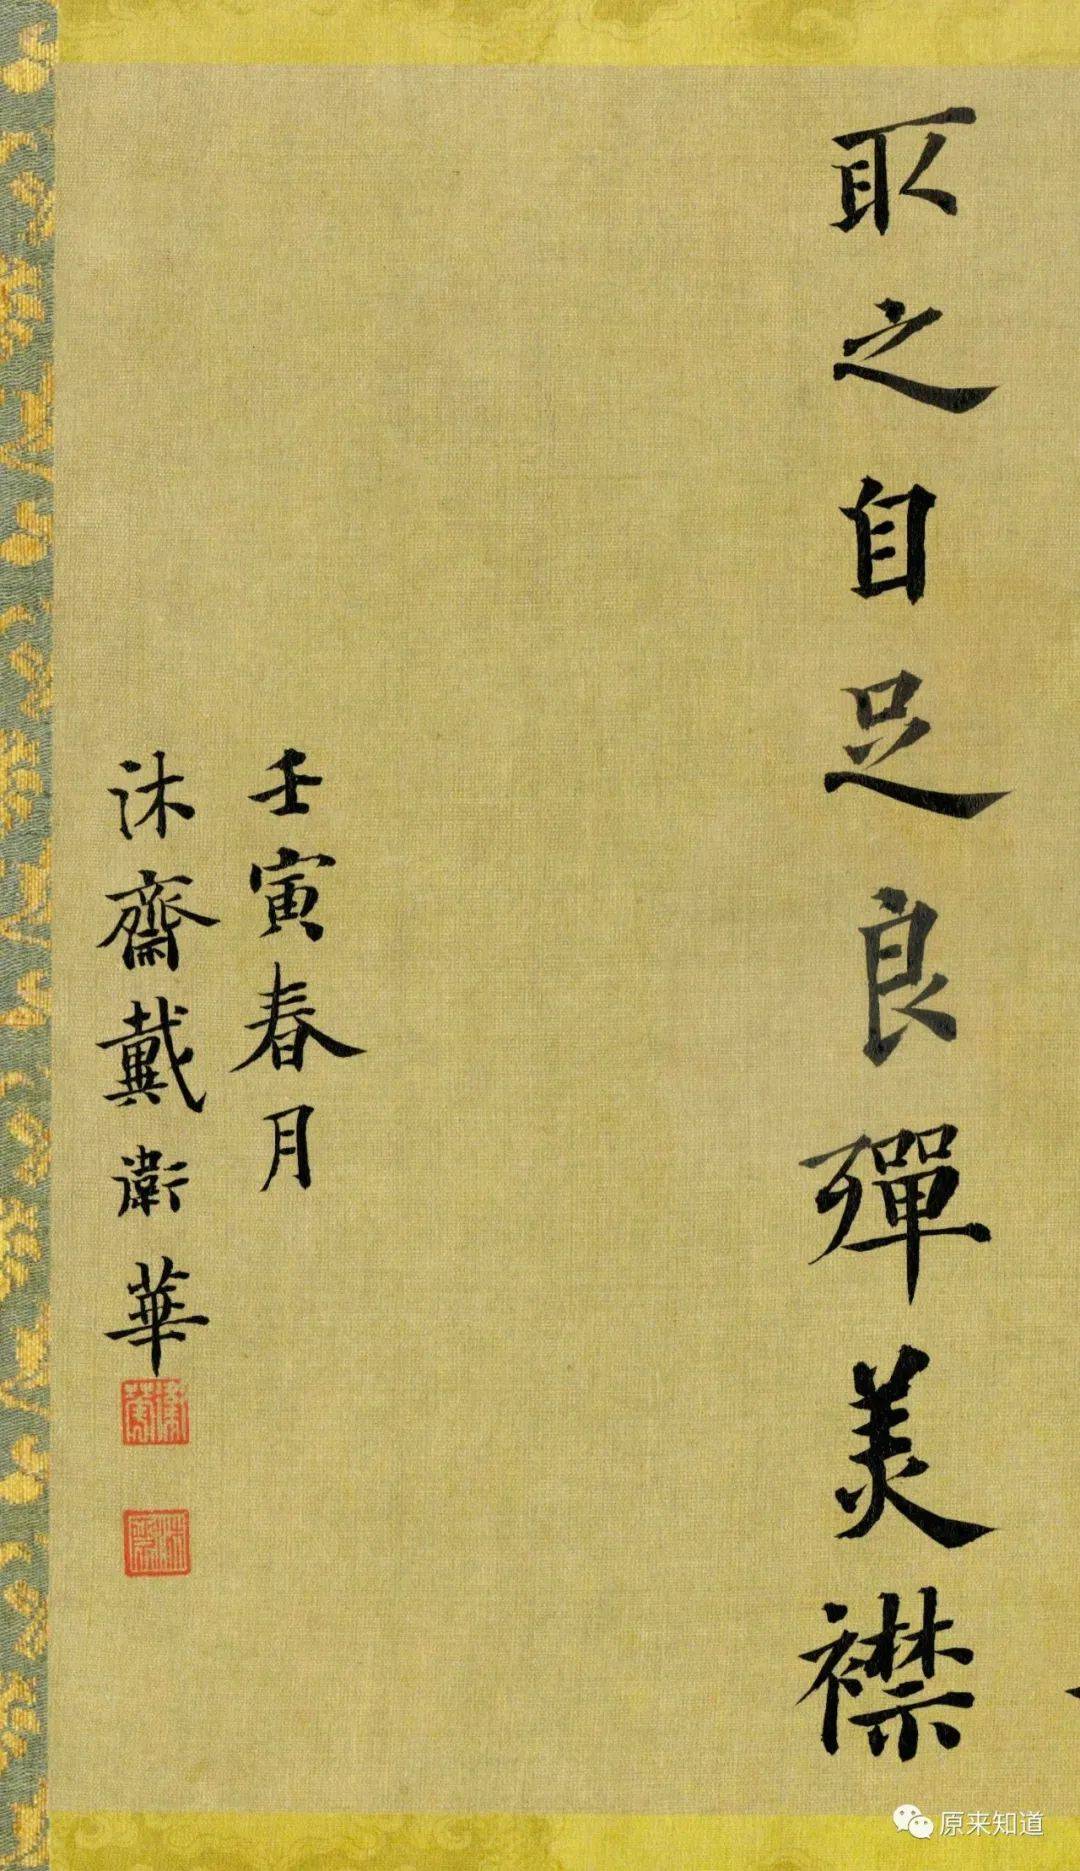 取之自足良殫美襟
壬寅春月
沐齋戴衛華
原来知道